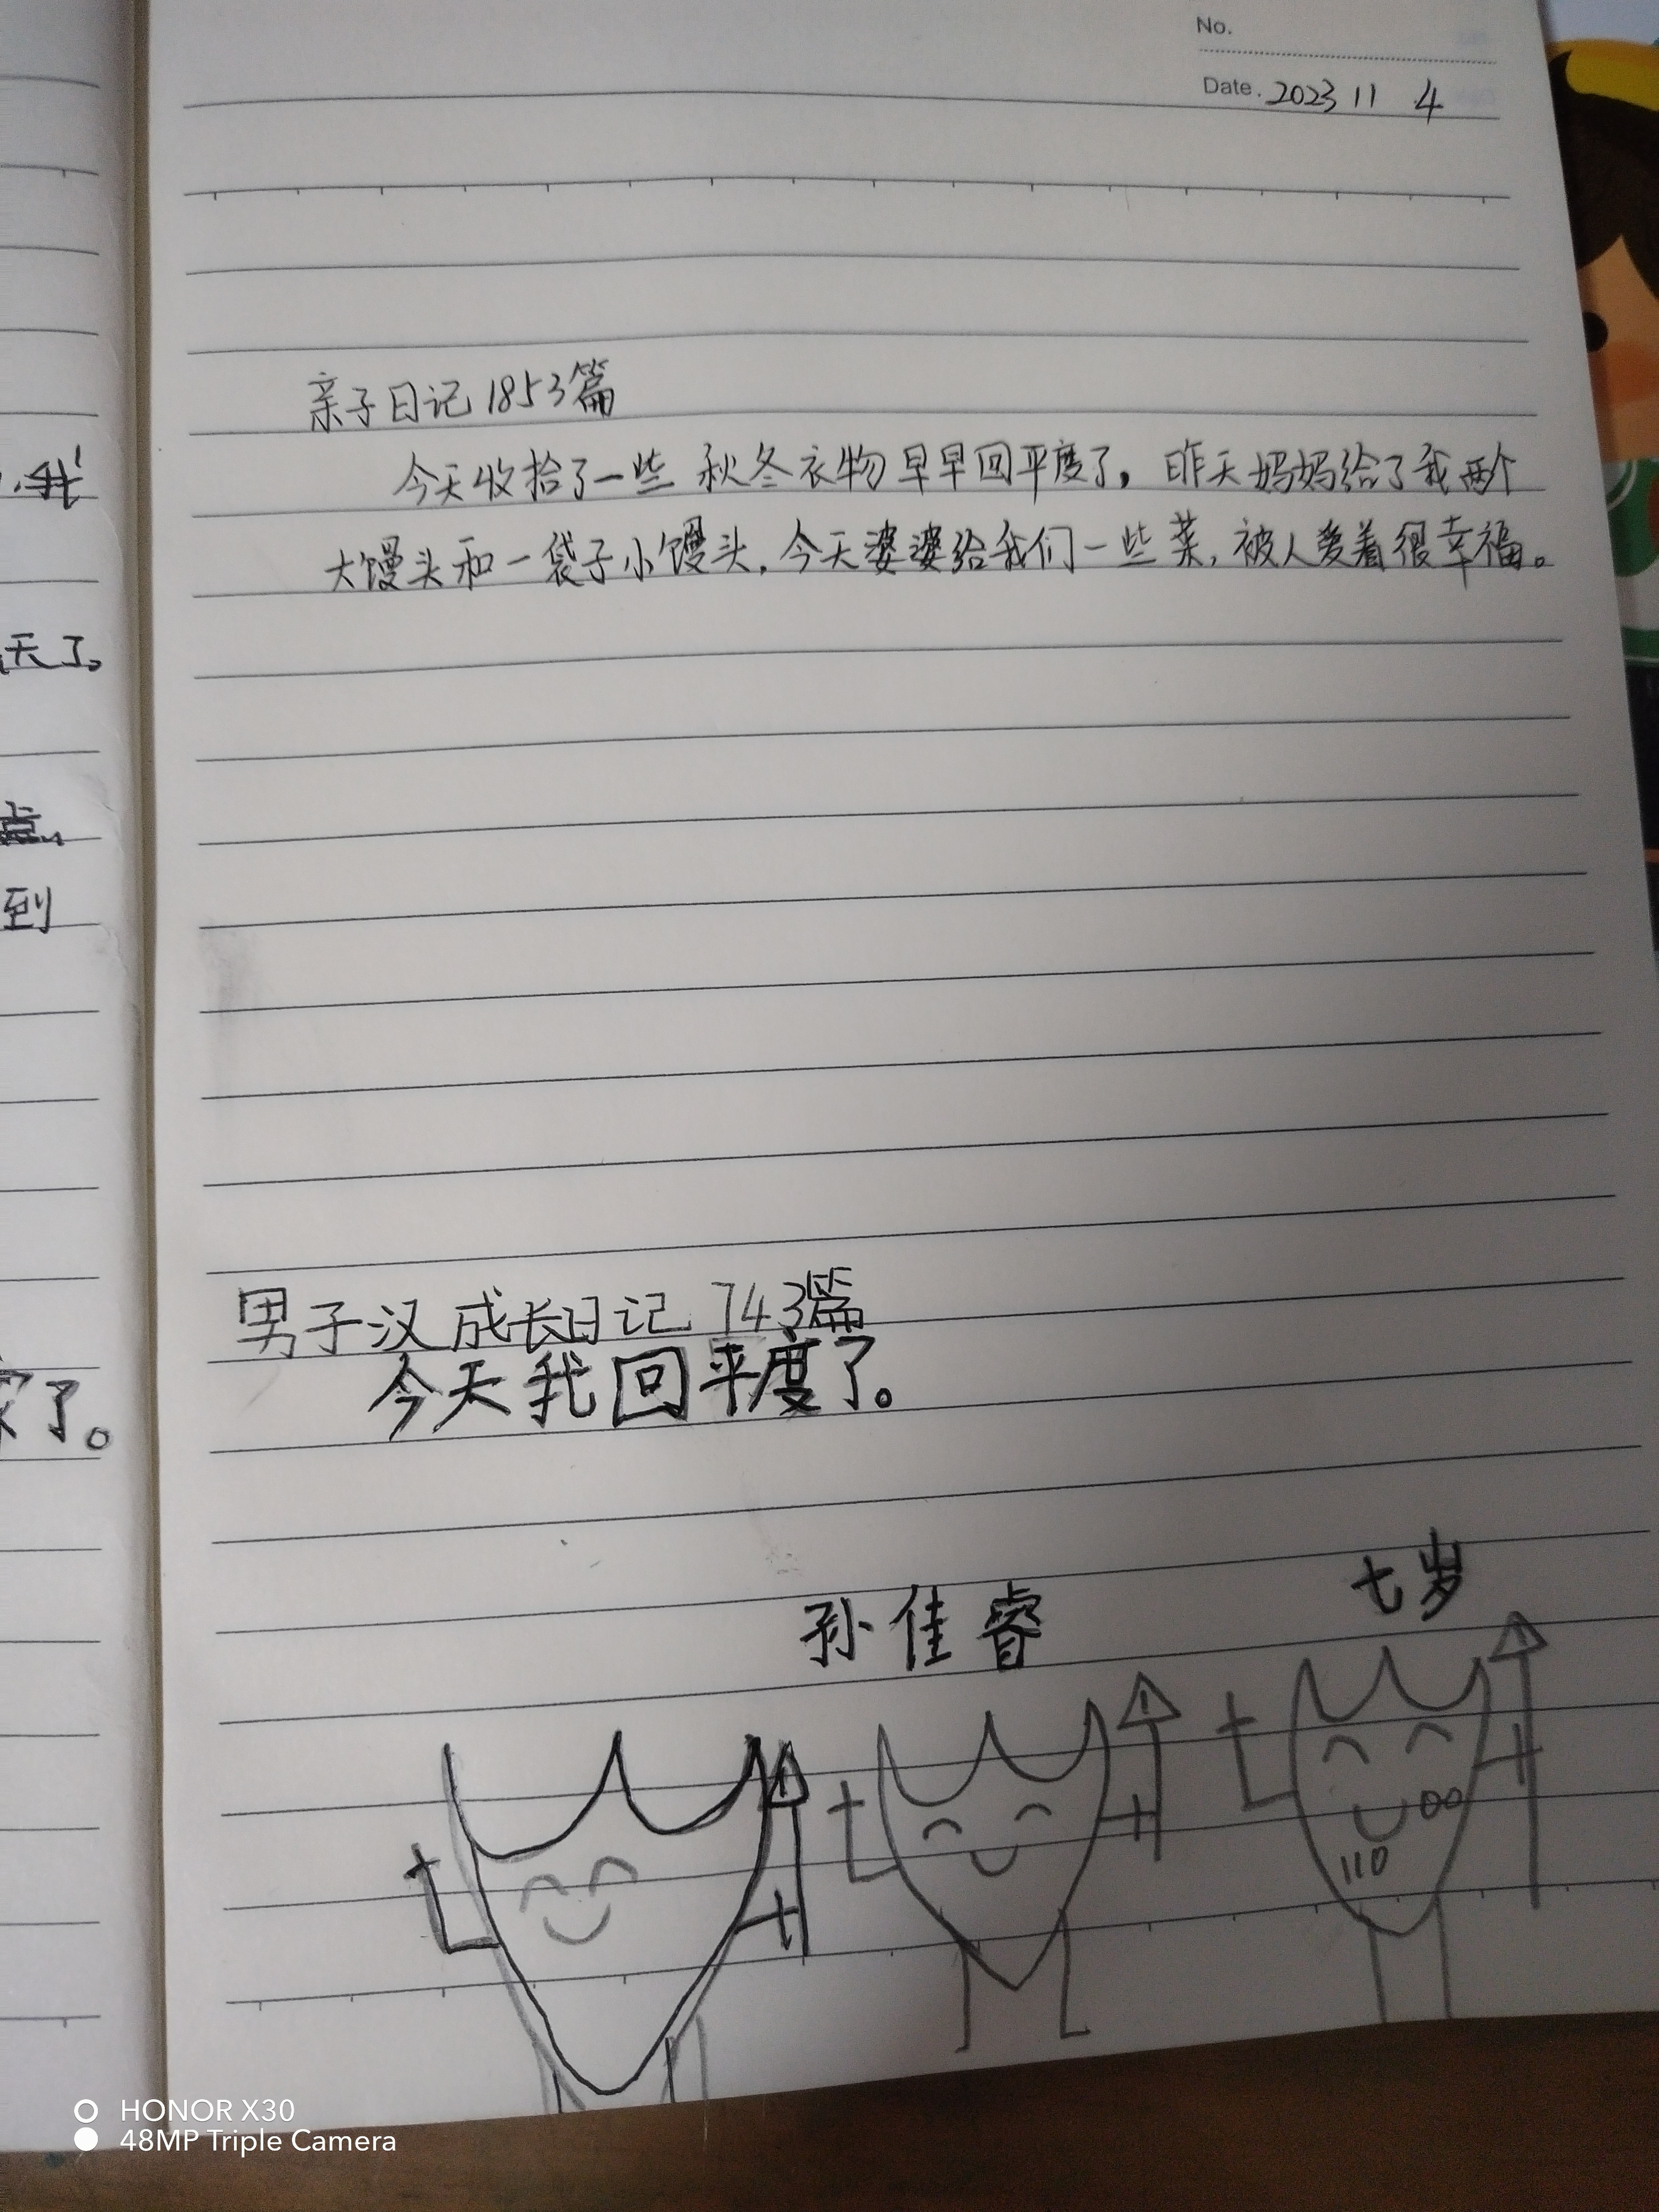 No.
Date. 2023 11 4
亲子日记1853篇
今天收拾了一些秋冬衣物早早回平度了，昨天妈妈给了我两个
大馒头和一袋子小馒头，今天婆婆给我们一些菜，被人爱着很幸福。
男子汉成长日记 743篇
今天我回平度了。
七岁
孙佳睿
110
天了。
点
到
家了。
HONOR X30
48MP Triple Camera